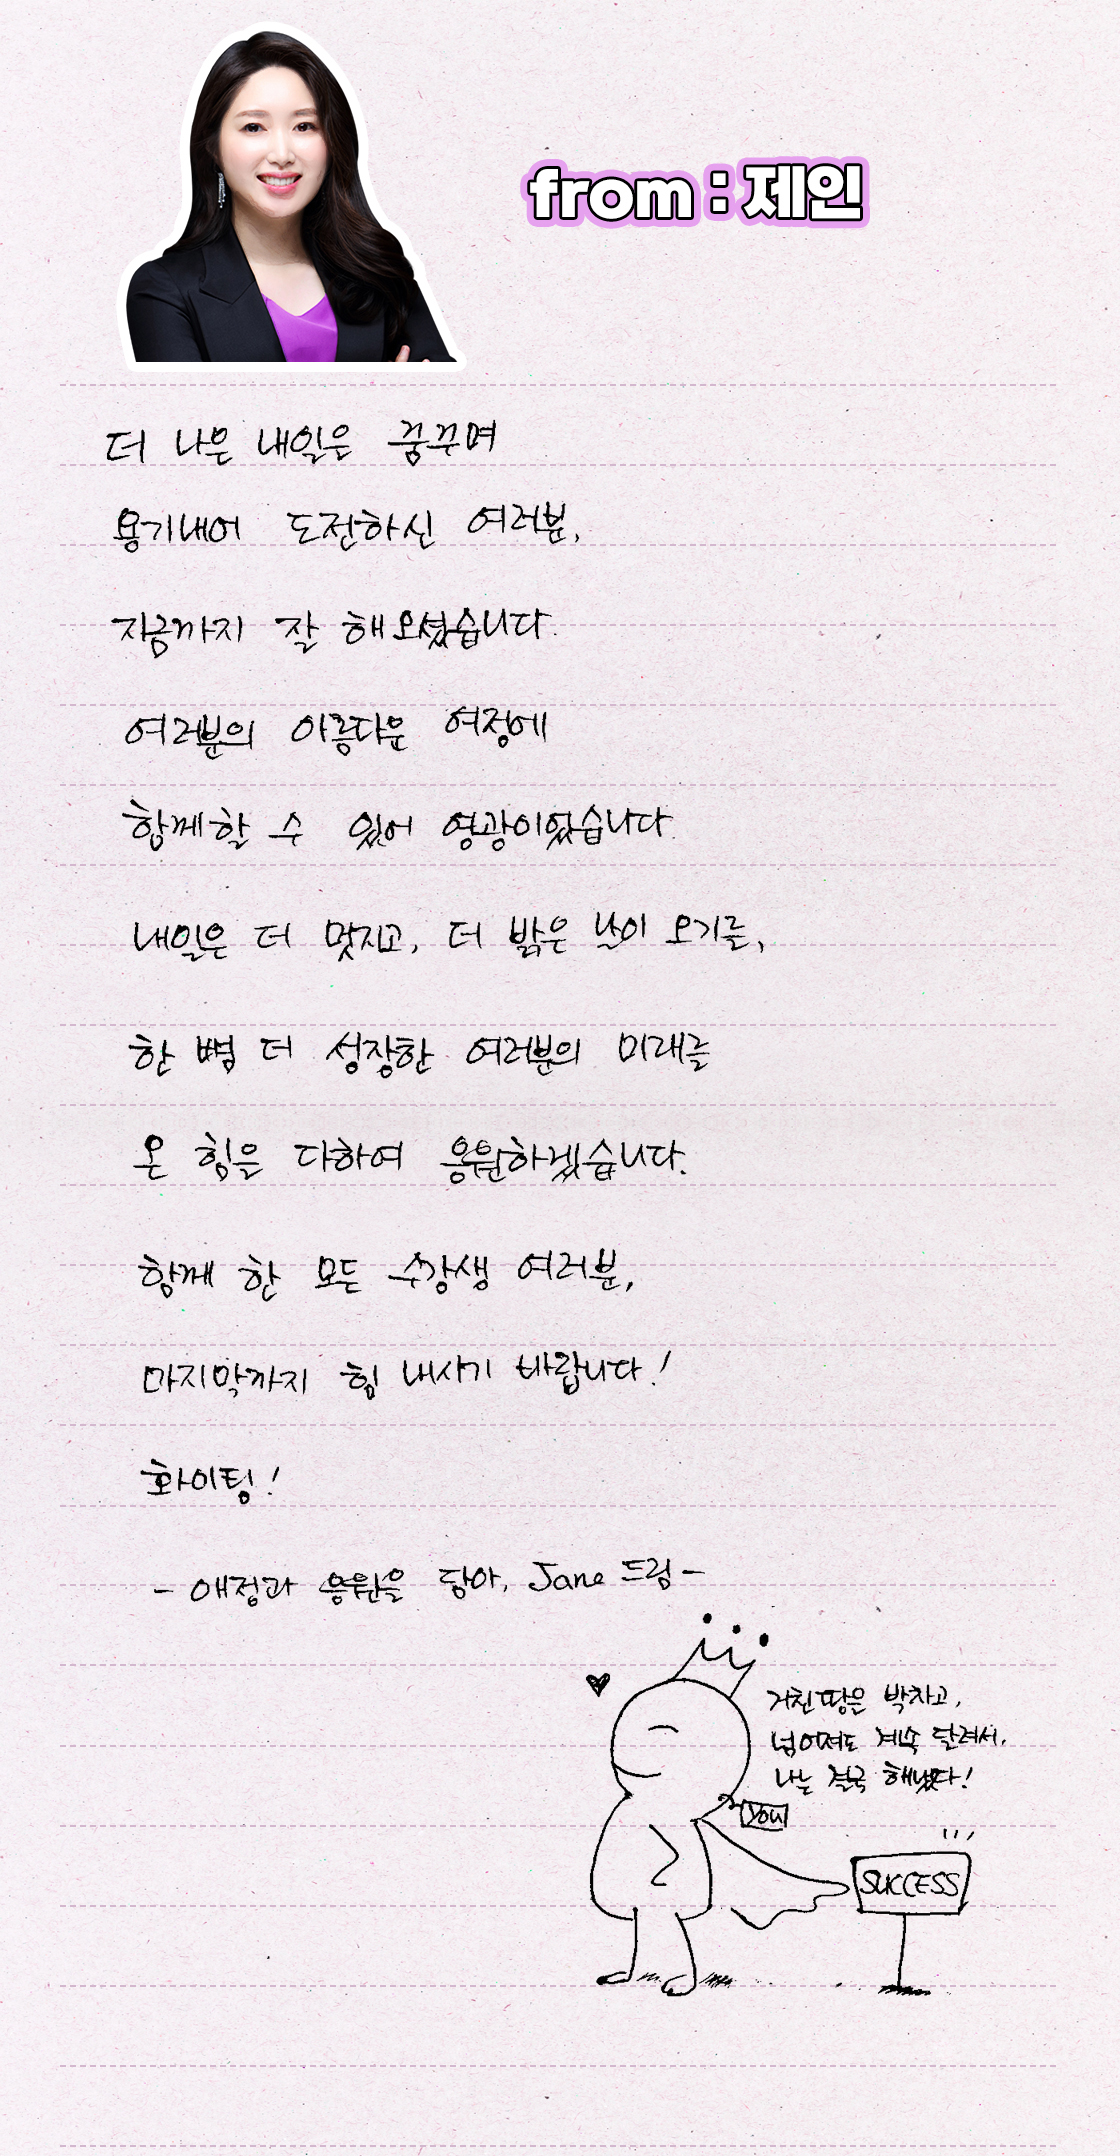 from : 제인
더 나은 내일은 꿈꾸며
용기내어 도전하신 여러분,
지금까지 잘 해오셨습니다.
여러분의 아름다운 여정에
함께할 수 있어 영광이었습니다.
내일은 더 멋지고, 더 밝은 날이 오기를,
한 뼘 더 성장한 여러분의 미래를
온 힘을 다하여 응원하겠습니다.
함께 한 모든 수강생 여러분,
마지막까지 힘 내시기 바랍니다!
화이팅!
- 애정과 응원을 담아, Jane 드림 -
거친 땅은 박차고,
넘어져도 계속 달려서,
나는 결국 해냈다!
you
SUCCESS